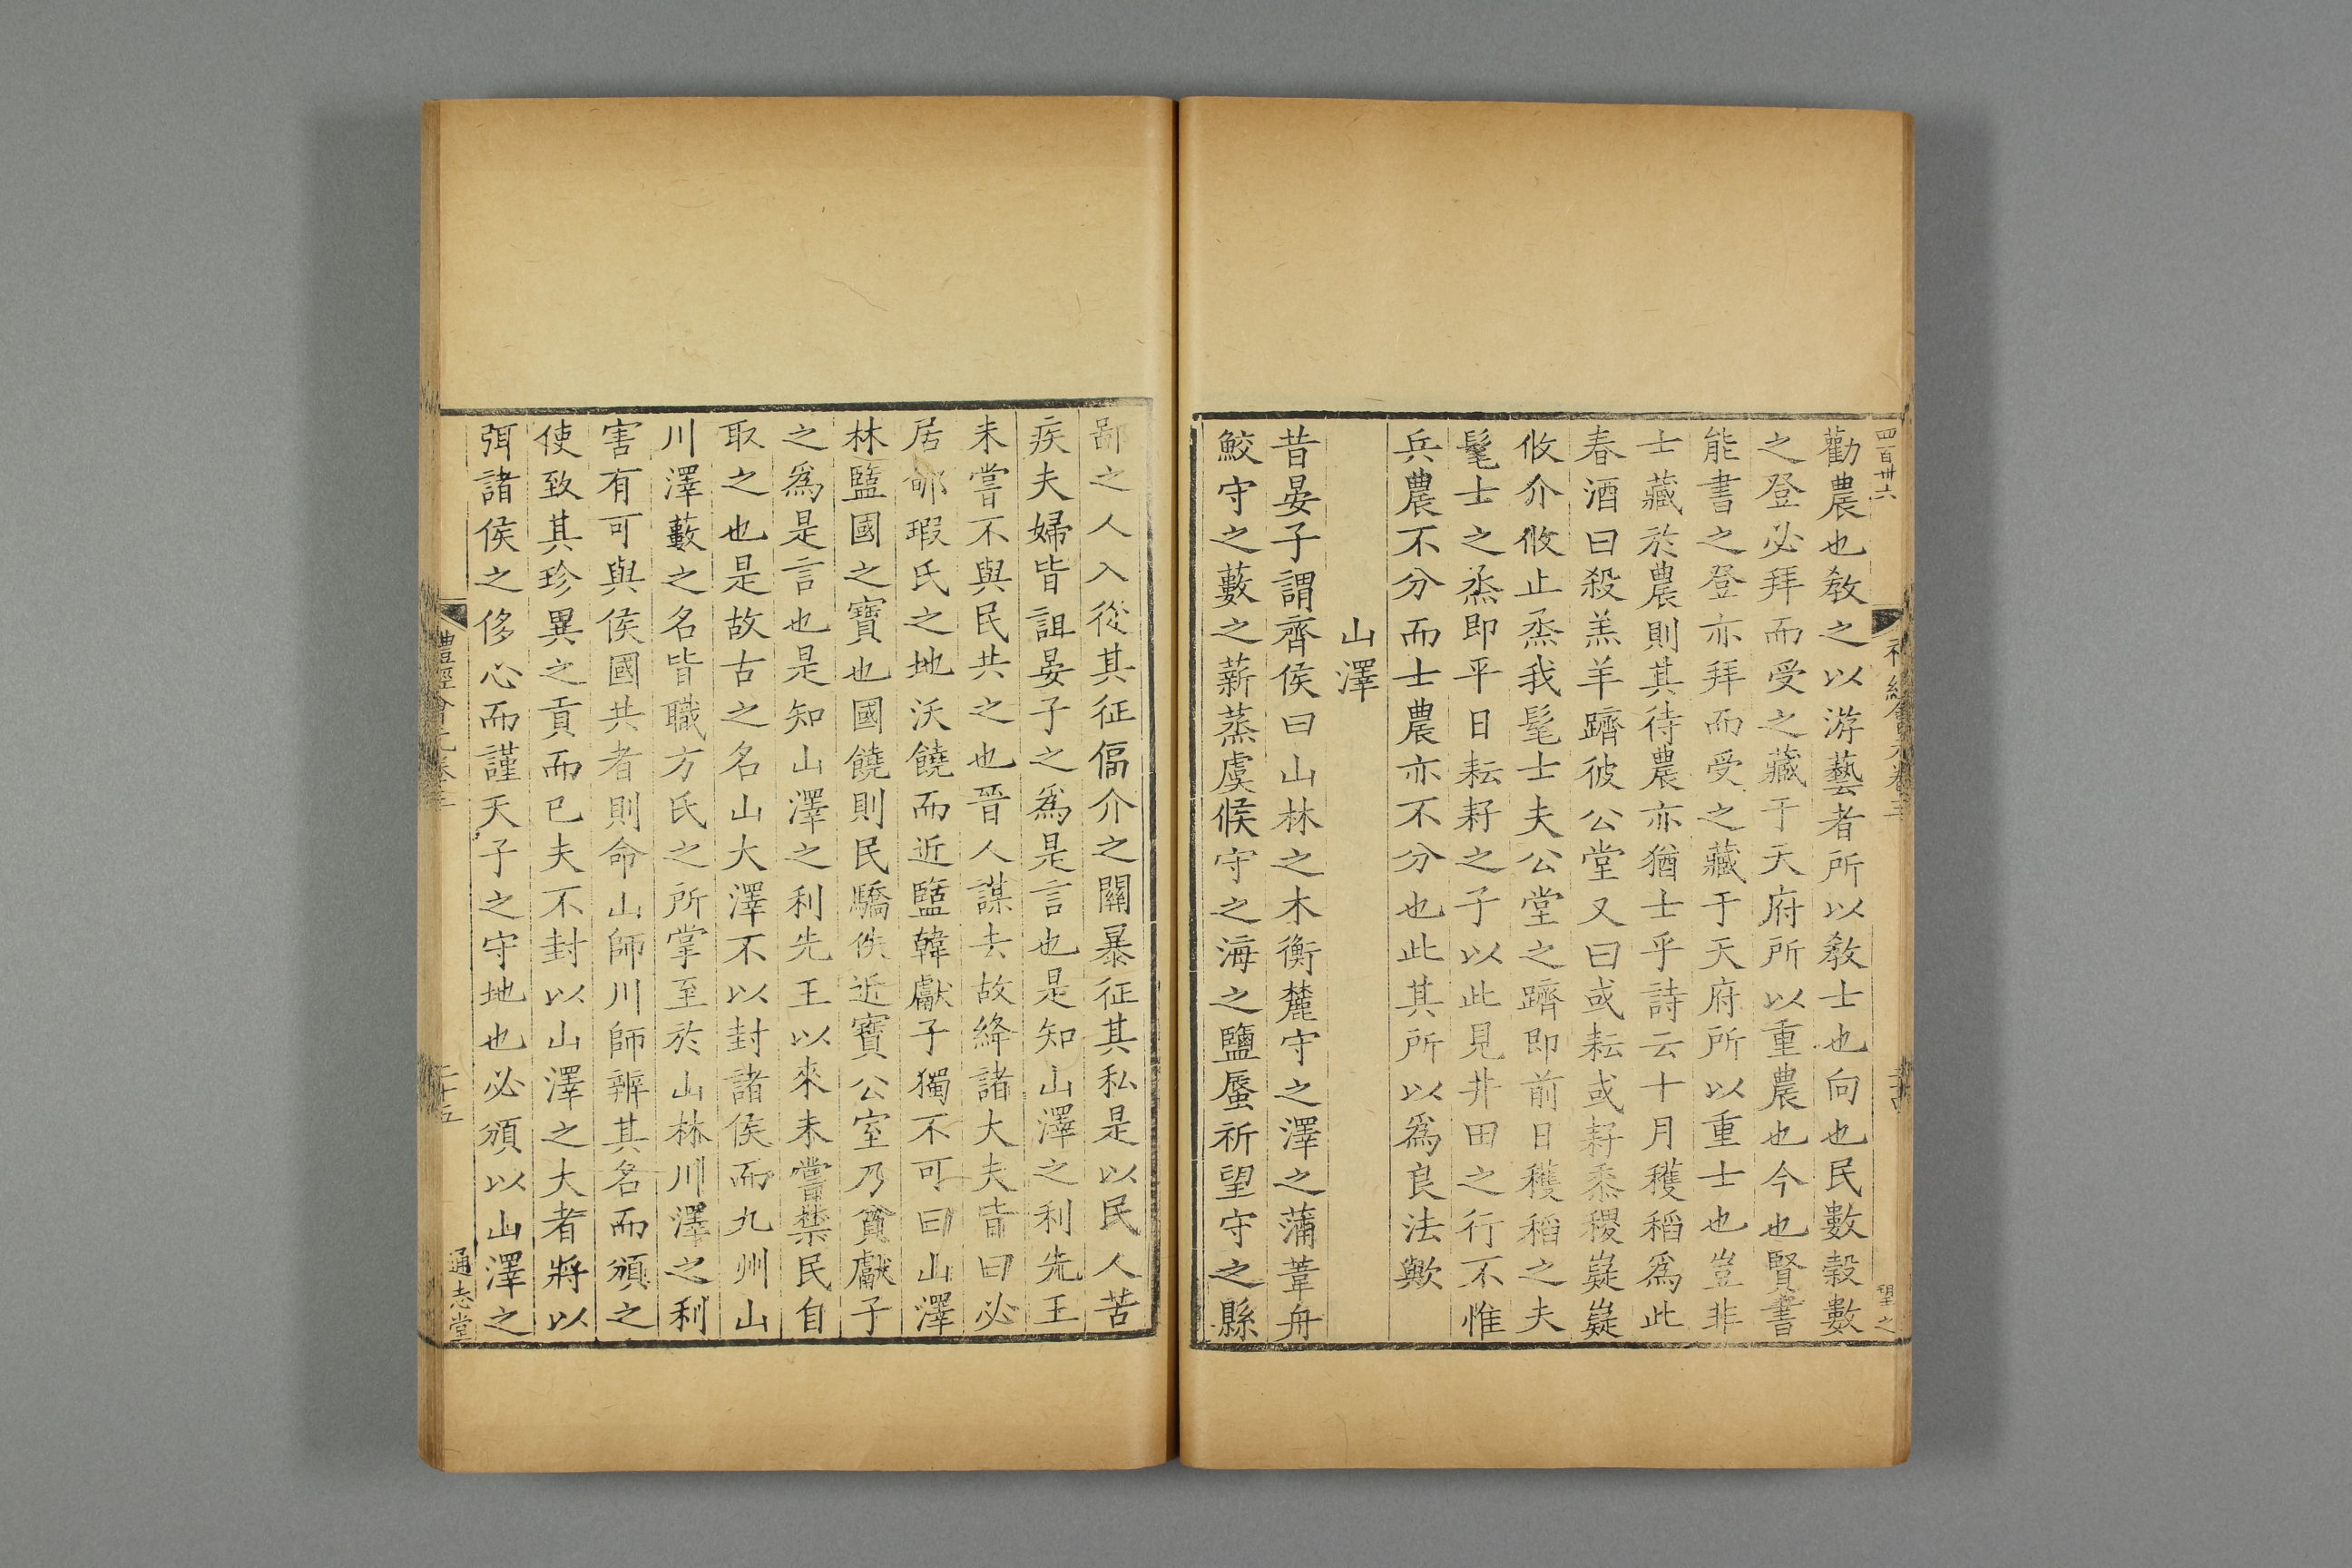 四百卅六
勸農也敎之以游藝者所以敎士也向也民數穀數
之登必拜而受之藏于天府所以重農也今也賢書
能書之登亦拜而受之藏于天府所以重士也豈非
士藏於農則其待農亦猶士乎詩云十月穫稻爲此
春酒曰殺羔羊躋彼公堂又曰或耘或耔黍稷嶷嶷
攸介攸止烝我髦士夫公堂之躋即前日穫稻之夫
髦士之烝即平日耘耔之子以此見井田之行不惟
兵農不分而士農亦不分也此其所以爲良法歟
山澤
昔晏子謂齊侯曰山林之木衡麓守之澤之蒲葦舟
鮫守之藪之薪蒸虞候守之海之鹽蜃祈望守之縣
鄙之人入從其征偪介之關暴征其私是以民人苦
疾夫婦皆詛晏子之爲是言也是知山澤之利先王
未嘗不與民共之也晉人謀去故絳諸大夫皆曰必
居郇瑕氏之地沃饒而近盬韓獻子獨不可曰山澤
林盬國之寶也國饒則民驕佚近寶公室乃貧獻子
之爲是言也是知山澤之利先王以來未嘗禁民自
取之也是故古之名山大澤不以封諸侯而九州山
川澤藪之名皆職方氏之所掌至於山林川澤之利
害有可與侯國共者則命山師川師辨其名而頒之
使致其珍異之貢而已夫不封以山澤之大者將以
弭諸侯之侈心而謹天子之守地也必頒以山澤之
禮經會元卷三
二十五
通志堂